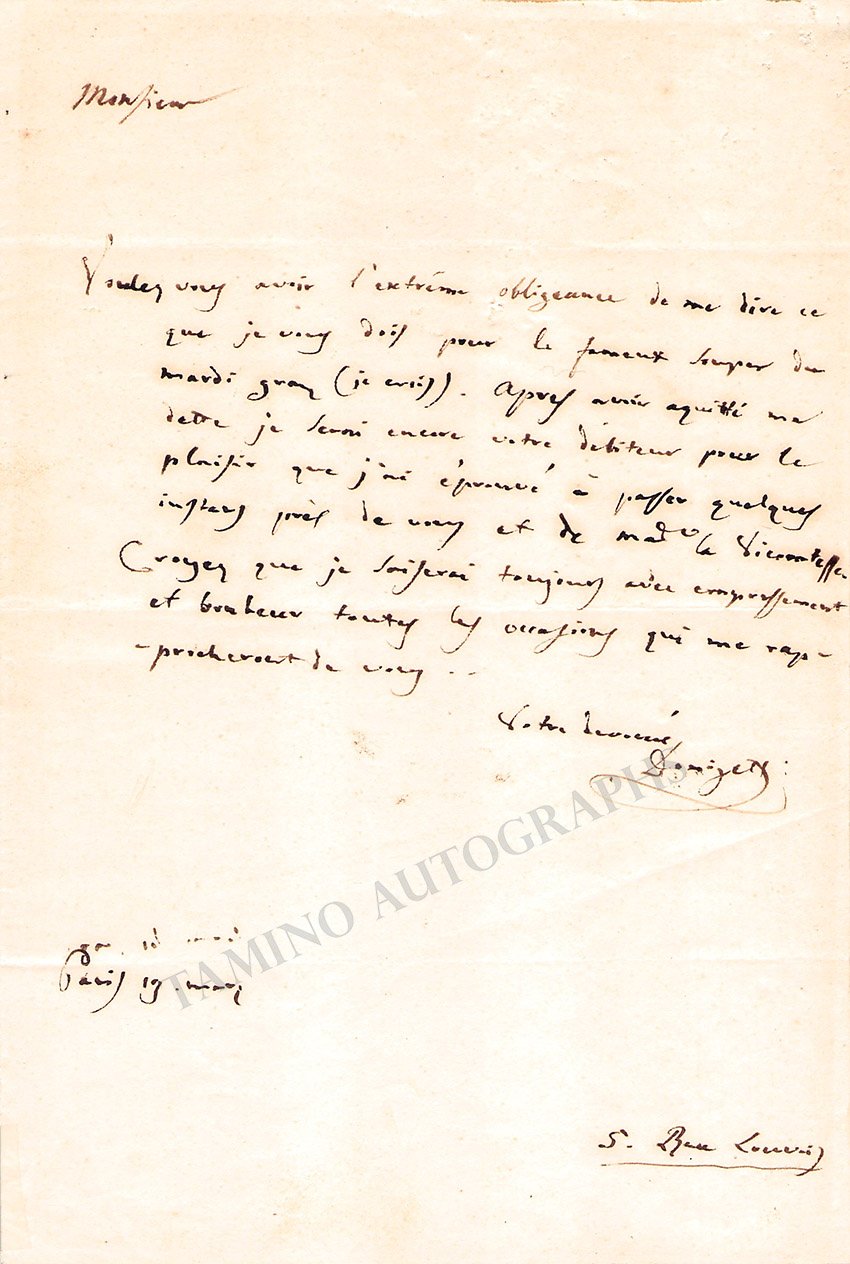 Monsieur
Voulez vous avoir l'extrême obligeance de me dire ce
que je vous dois pour le fameux souper du
mardi gras (je crois)). Après avoir aquitté ma
dette je serai encore votre débiteur pour le
plaisir que j'ai éprouvé à passer quelques
instans près de vous et de made la Vicomtesse.
Croyez que je saiserai toujours avec empressement
et bonheur toutes les occasions qui me rap-
-procheront de vous ..
Votre devoué
Donizetti
TAMINO AUTOGRAPHS
Paris 19 mars
5. Rue Louvois